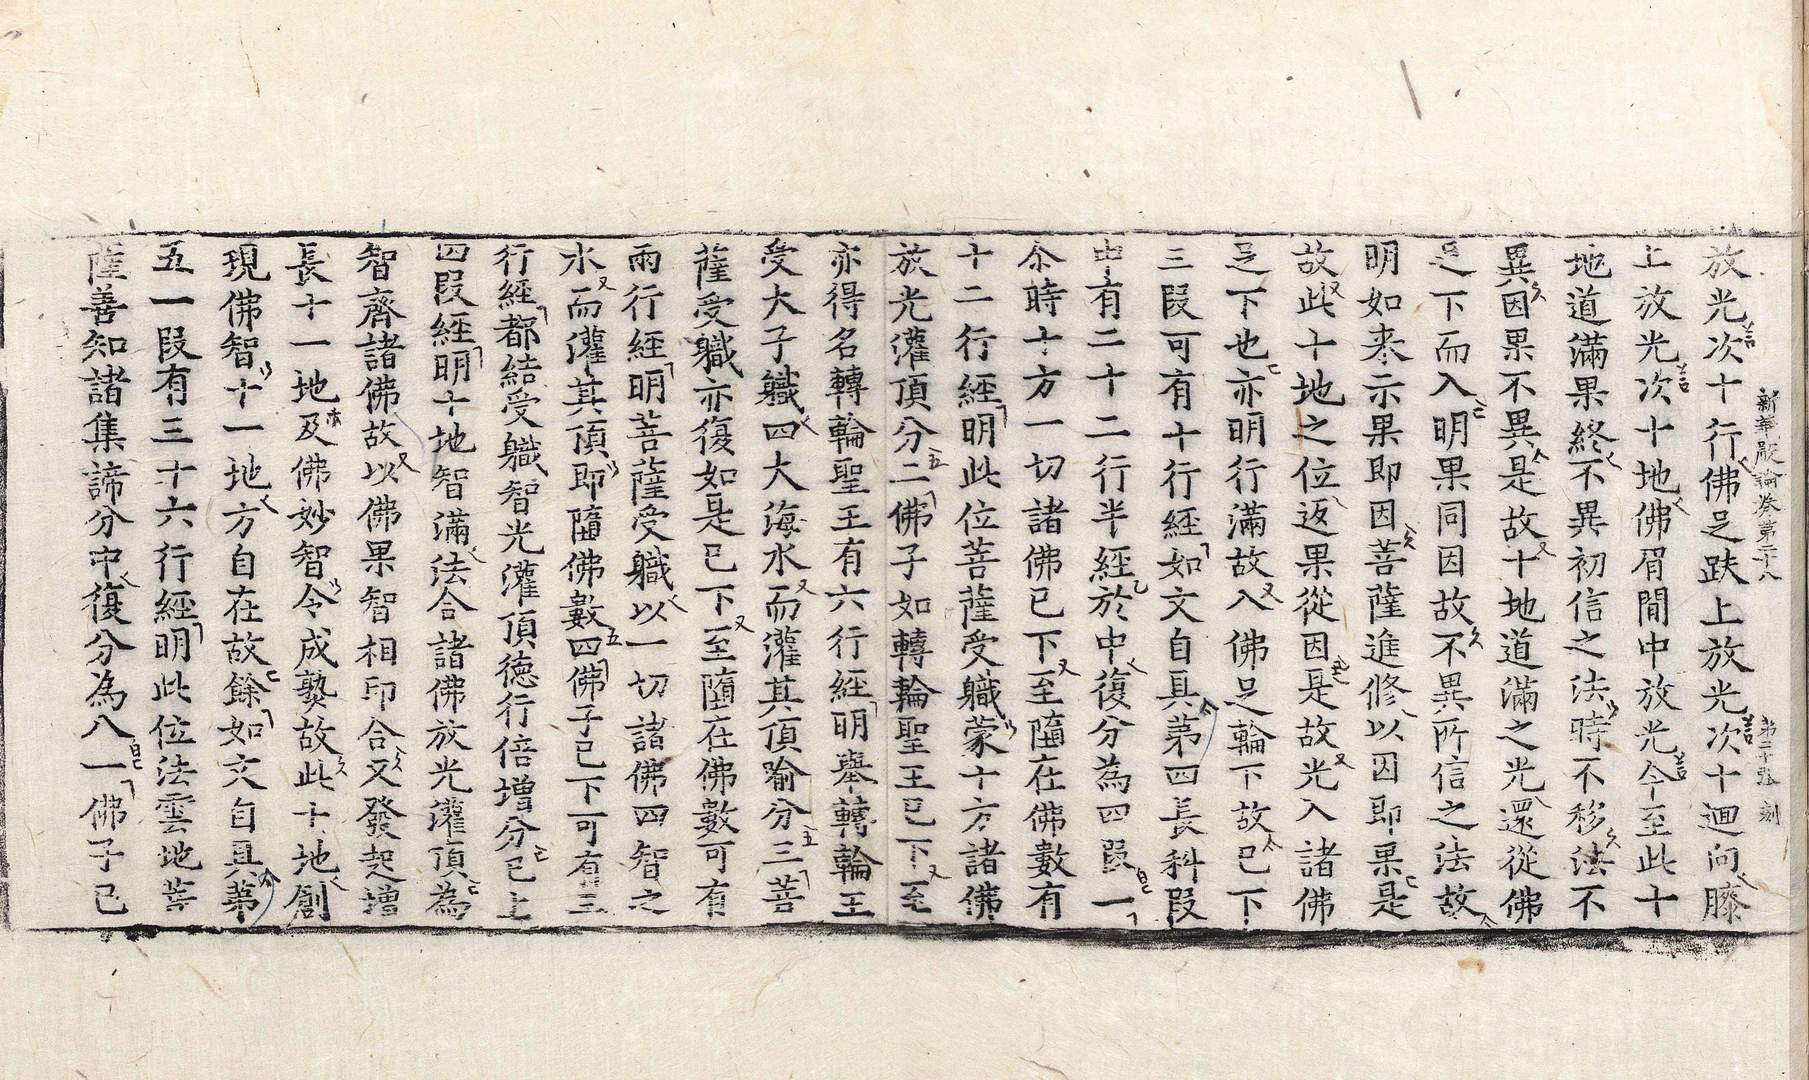 新華嚴論卷第二十八 第二十張 刻
放光次十行佛足趺上放光次十迴向膝
上放光次十地佛眉間中放光今至此十
地道滿果終不異初信之法時不移法不
異因果不異是故十地道滿之光還從佛
足下而入明果同因故不異所信之法故
明如來示果即因菩薩進修以因即果是
故此十地之位返果從因是故光入諸佛
足下也亦明行滿故入佛足輪下故已下
三段可有十行經如文自具第四長科段
中有二十二行半經於中復分為四段一
尒時十方一切諸佛已下至隨在佛數有
十二行經明此位菩薩受職蒙十方諸佛
放光灌頂分二佛子如轉輪聖王已下至
亦得名轉輪聖王有六行經明舉轉輪王
受大子職四大海水而灌其頂喻分三菩
薩受職亦復如是已下至墮在佛數可有
兩行經明菩薩受職以一切諸佛四智之
水而灌其頂即墮佛數四佛子已下可有三
行經都結受職智光灌頂德行倍增分已上
四段經明十地智滿法合諸佛放光灌頂為
智齊諸佛故以佛果智相印合又發起增
長十一地及佛妙智令成熟故此十地創
現佛智十一地方自在故餘如文自具第
五一段有三十六行經明此位法雲地菩
薩善知諸集諦分中復分為八一佛子已